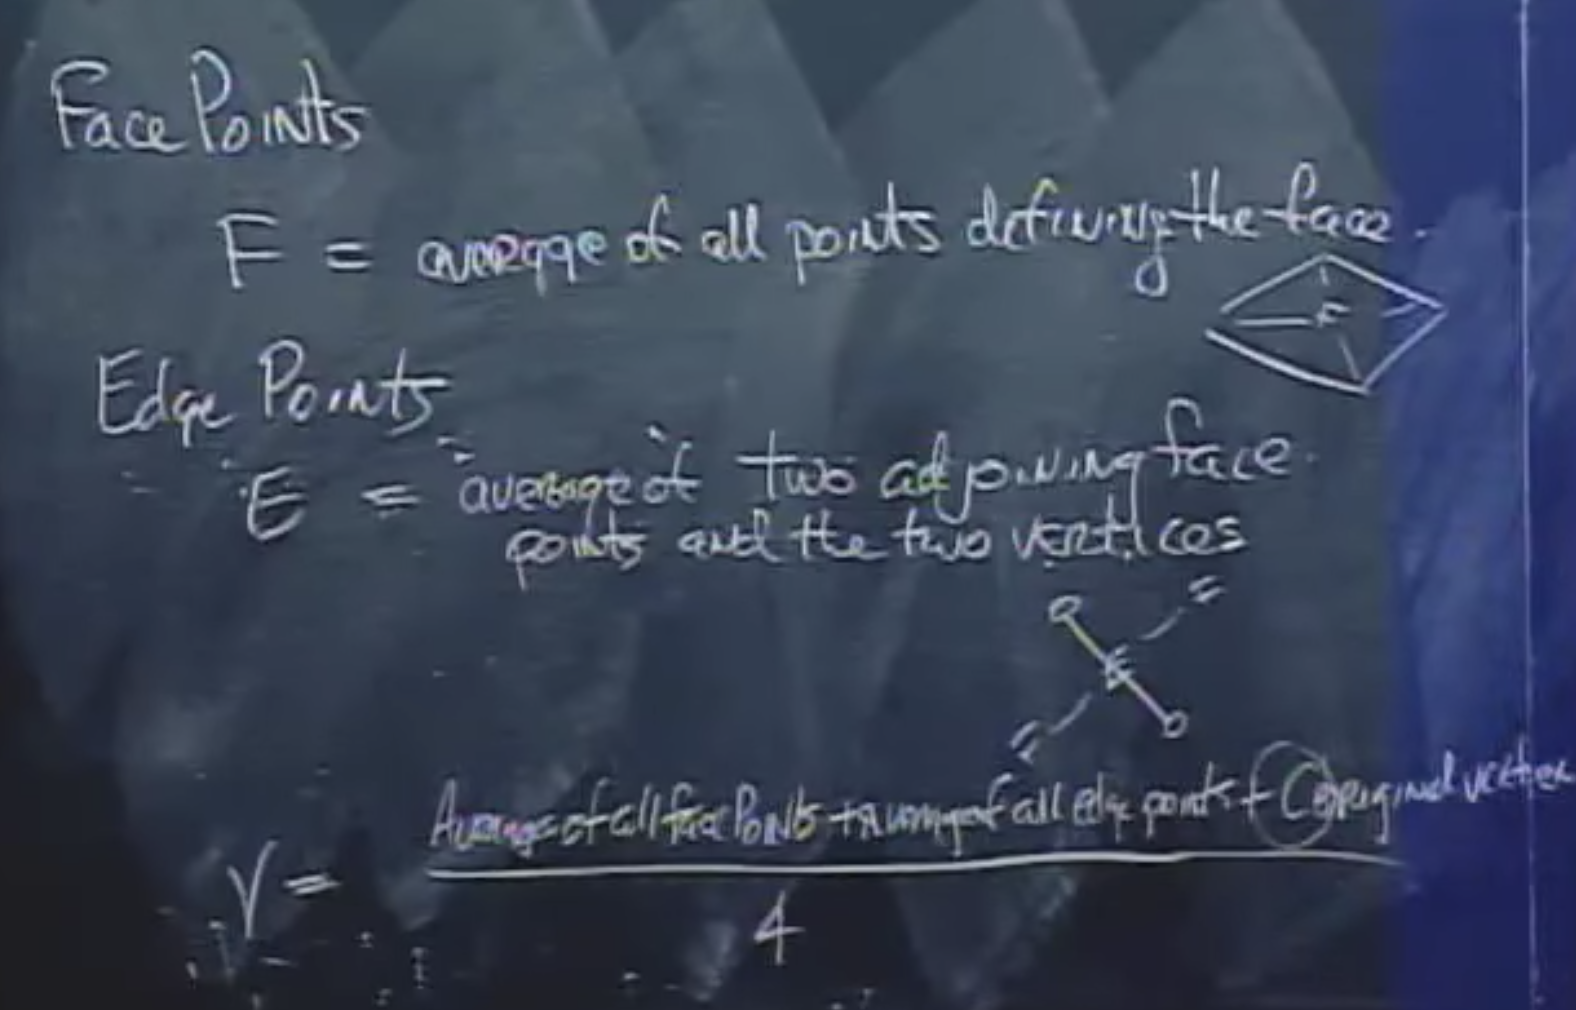 Face Points
F = average of all points defining the face.
F
Edge Points
E = average of two adjoining face
points and the two vertices
F
E
F
Average of all face Points + average of all edge points + original vertex
V =
4